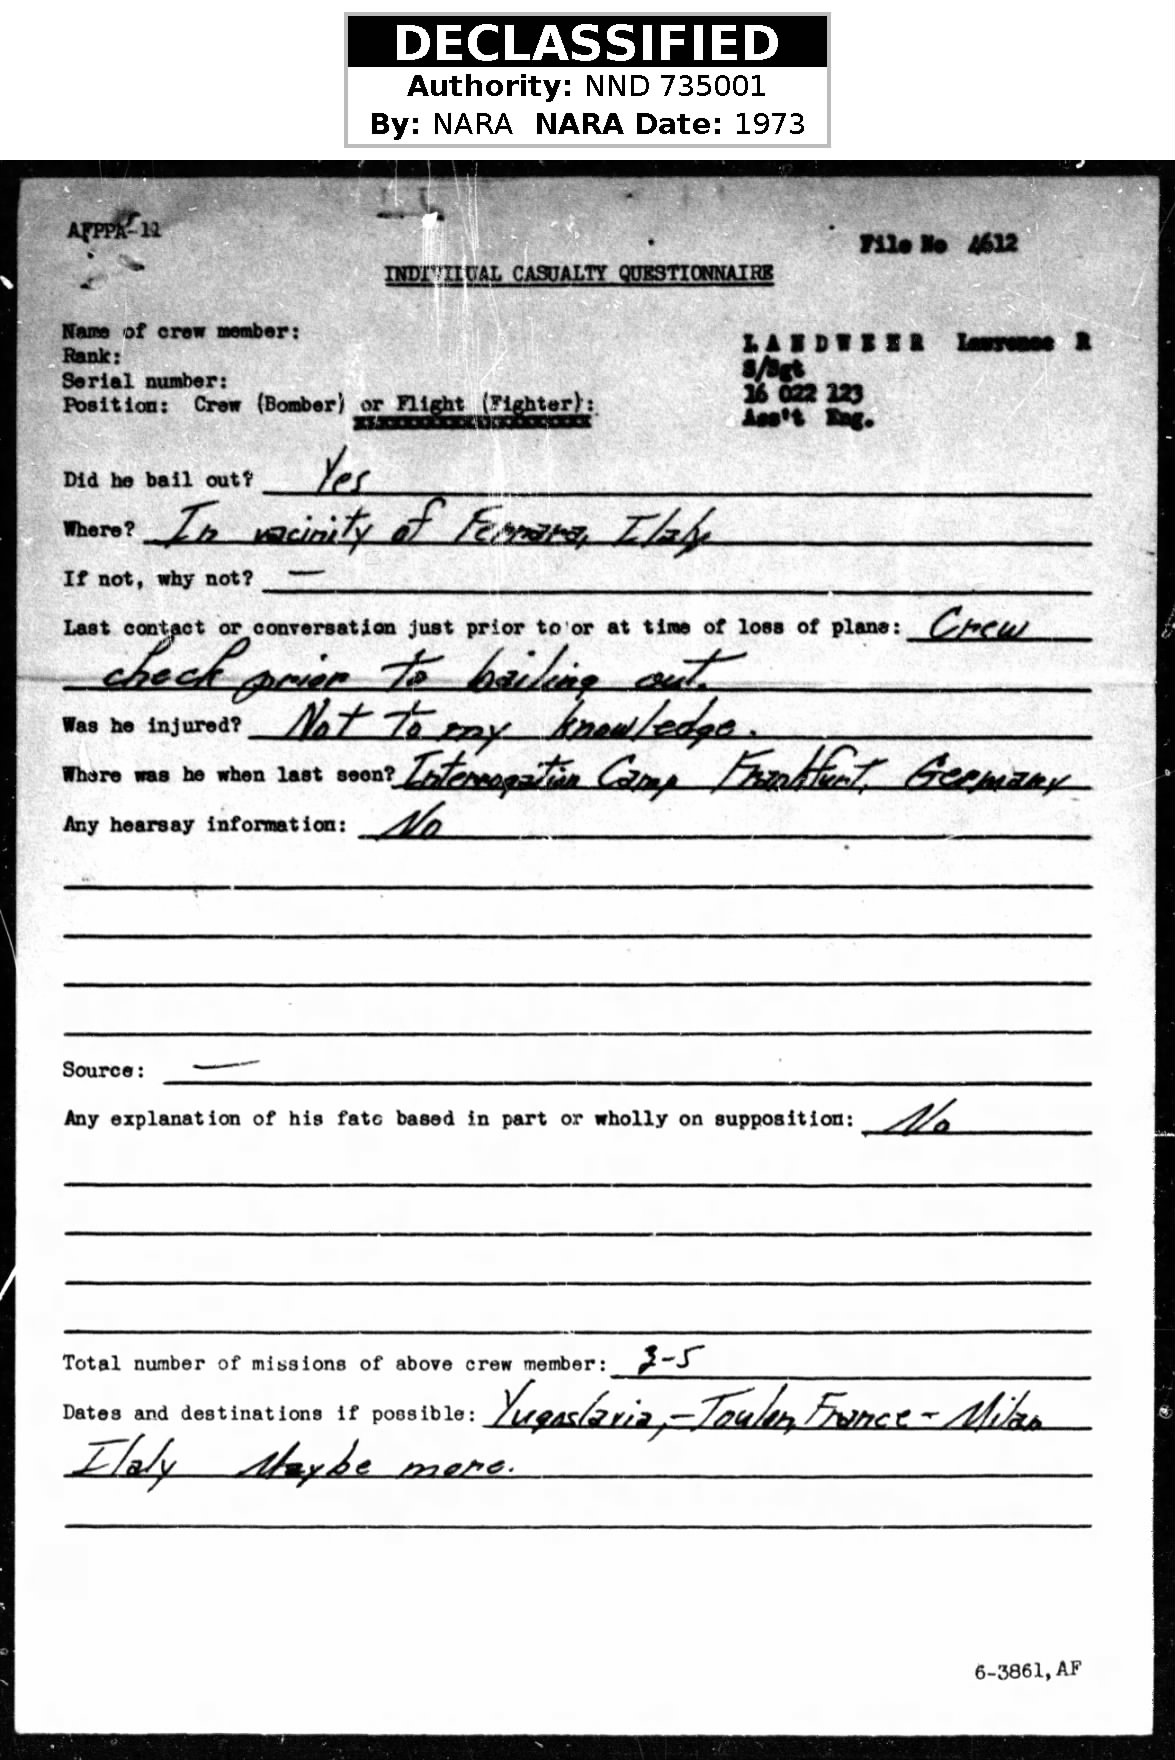 DECLASSIFIED
Authority: NND 735001
By: NARA NARA Date: 1973
AFPPA-11
File No 4612
INDIVIDUAL CASUALTY QUESTIONNAIRE
Name of crew member: L A N D W E E R Lawrence R
Rank: S/Sgt
Serial number: 16 022 123
Position: Crew (Bomber) or Flight (Fighter): Ass't Eng.
Did he bail out? Yes
Where? In vacinity of Ferrara, Italy
If not, why not? —
Last contact or conversation just prior to or at time of loss of plane: Crew
check prior to bailing out.
Was he injured? Not to my knowledge.
Where was he when last seen? Interrogation Camp Frankfurt, Germany
Any hearsay information: No
Source: —
Any explanation of his fate based in part or wholly on supposition: No
Total number of missions of above crew member: 3-5
Dates and destinations if possible: Yugoslavia,-Toulon, France - Milan
Italy Maybe more.
6-3861,AF